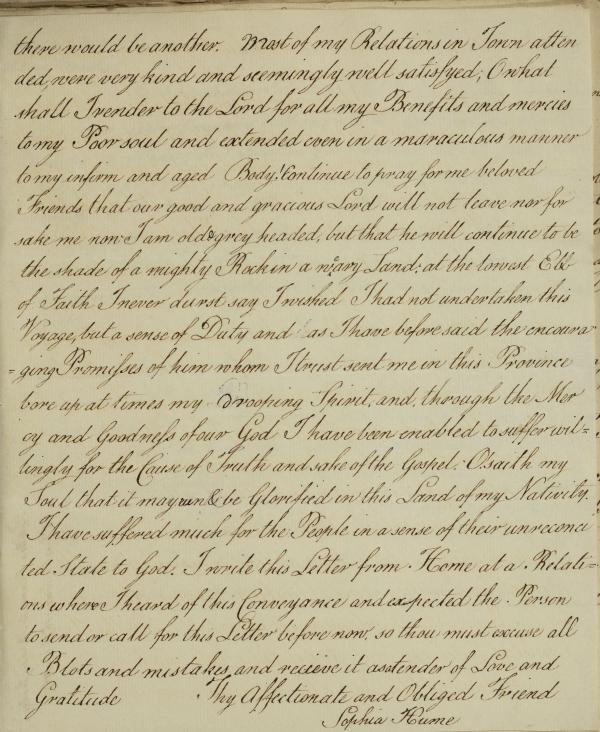 there would be another. Most of my Relations in Town atten
ded, were very kind and seemingly well satisfyed; O what
shall I render to the Lord for all my Benefits and mercies
to my Poor soul and extended even in a maraculous manner
to my infirm and aged Body! Continue to pray for me beloved
Friends that our good and gracious Lord will not leave nor for
sake me now I am old & grey headed, but that he will continue to be
the shade of a mighty Rock in a weary Land; at the lowest Ebb
of Faith I never durst say I wished I had not undertaken this
Voyage, but a sense of Duty and as I have before said the encoura
=ging Promisses of him whom I trust sent me in this Province
bore up at times my drooping Spirit, and, through the Mer
cy and Goodness of our God I have been enabled to suffer wil=
lingly for the Cause of Truth and sake of the Gospel: O saith my
Soul that it may run & be Glorified in this Land of my Nativity.
I have suffered much for the People in a sense of their unreconci
led State to God. I write this Letter from Home at a Relati=
ons where I heard of this Conveyance and expected the Person
to send or call for this Letter before now, so thou must excuse all
Blots and mistakes, and recieve it as a tender of Love and
Gratitude Thy Affectionate and Obliged Friend
Sophia Hume